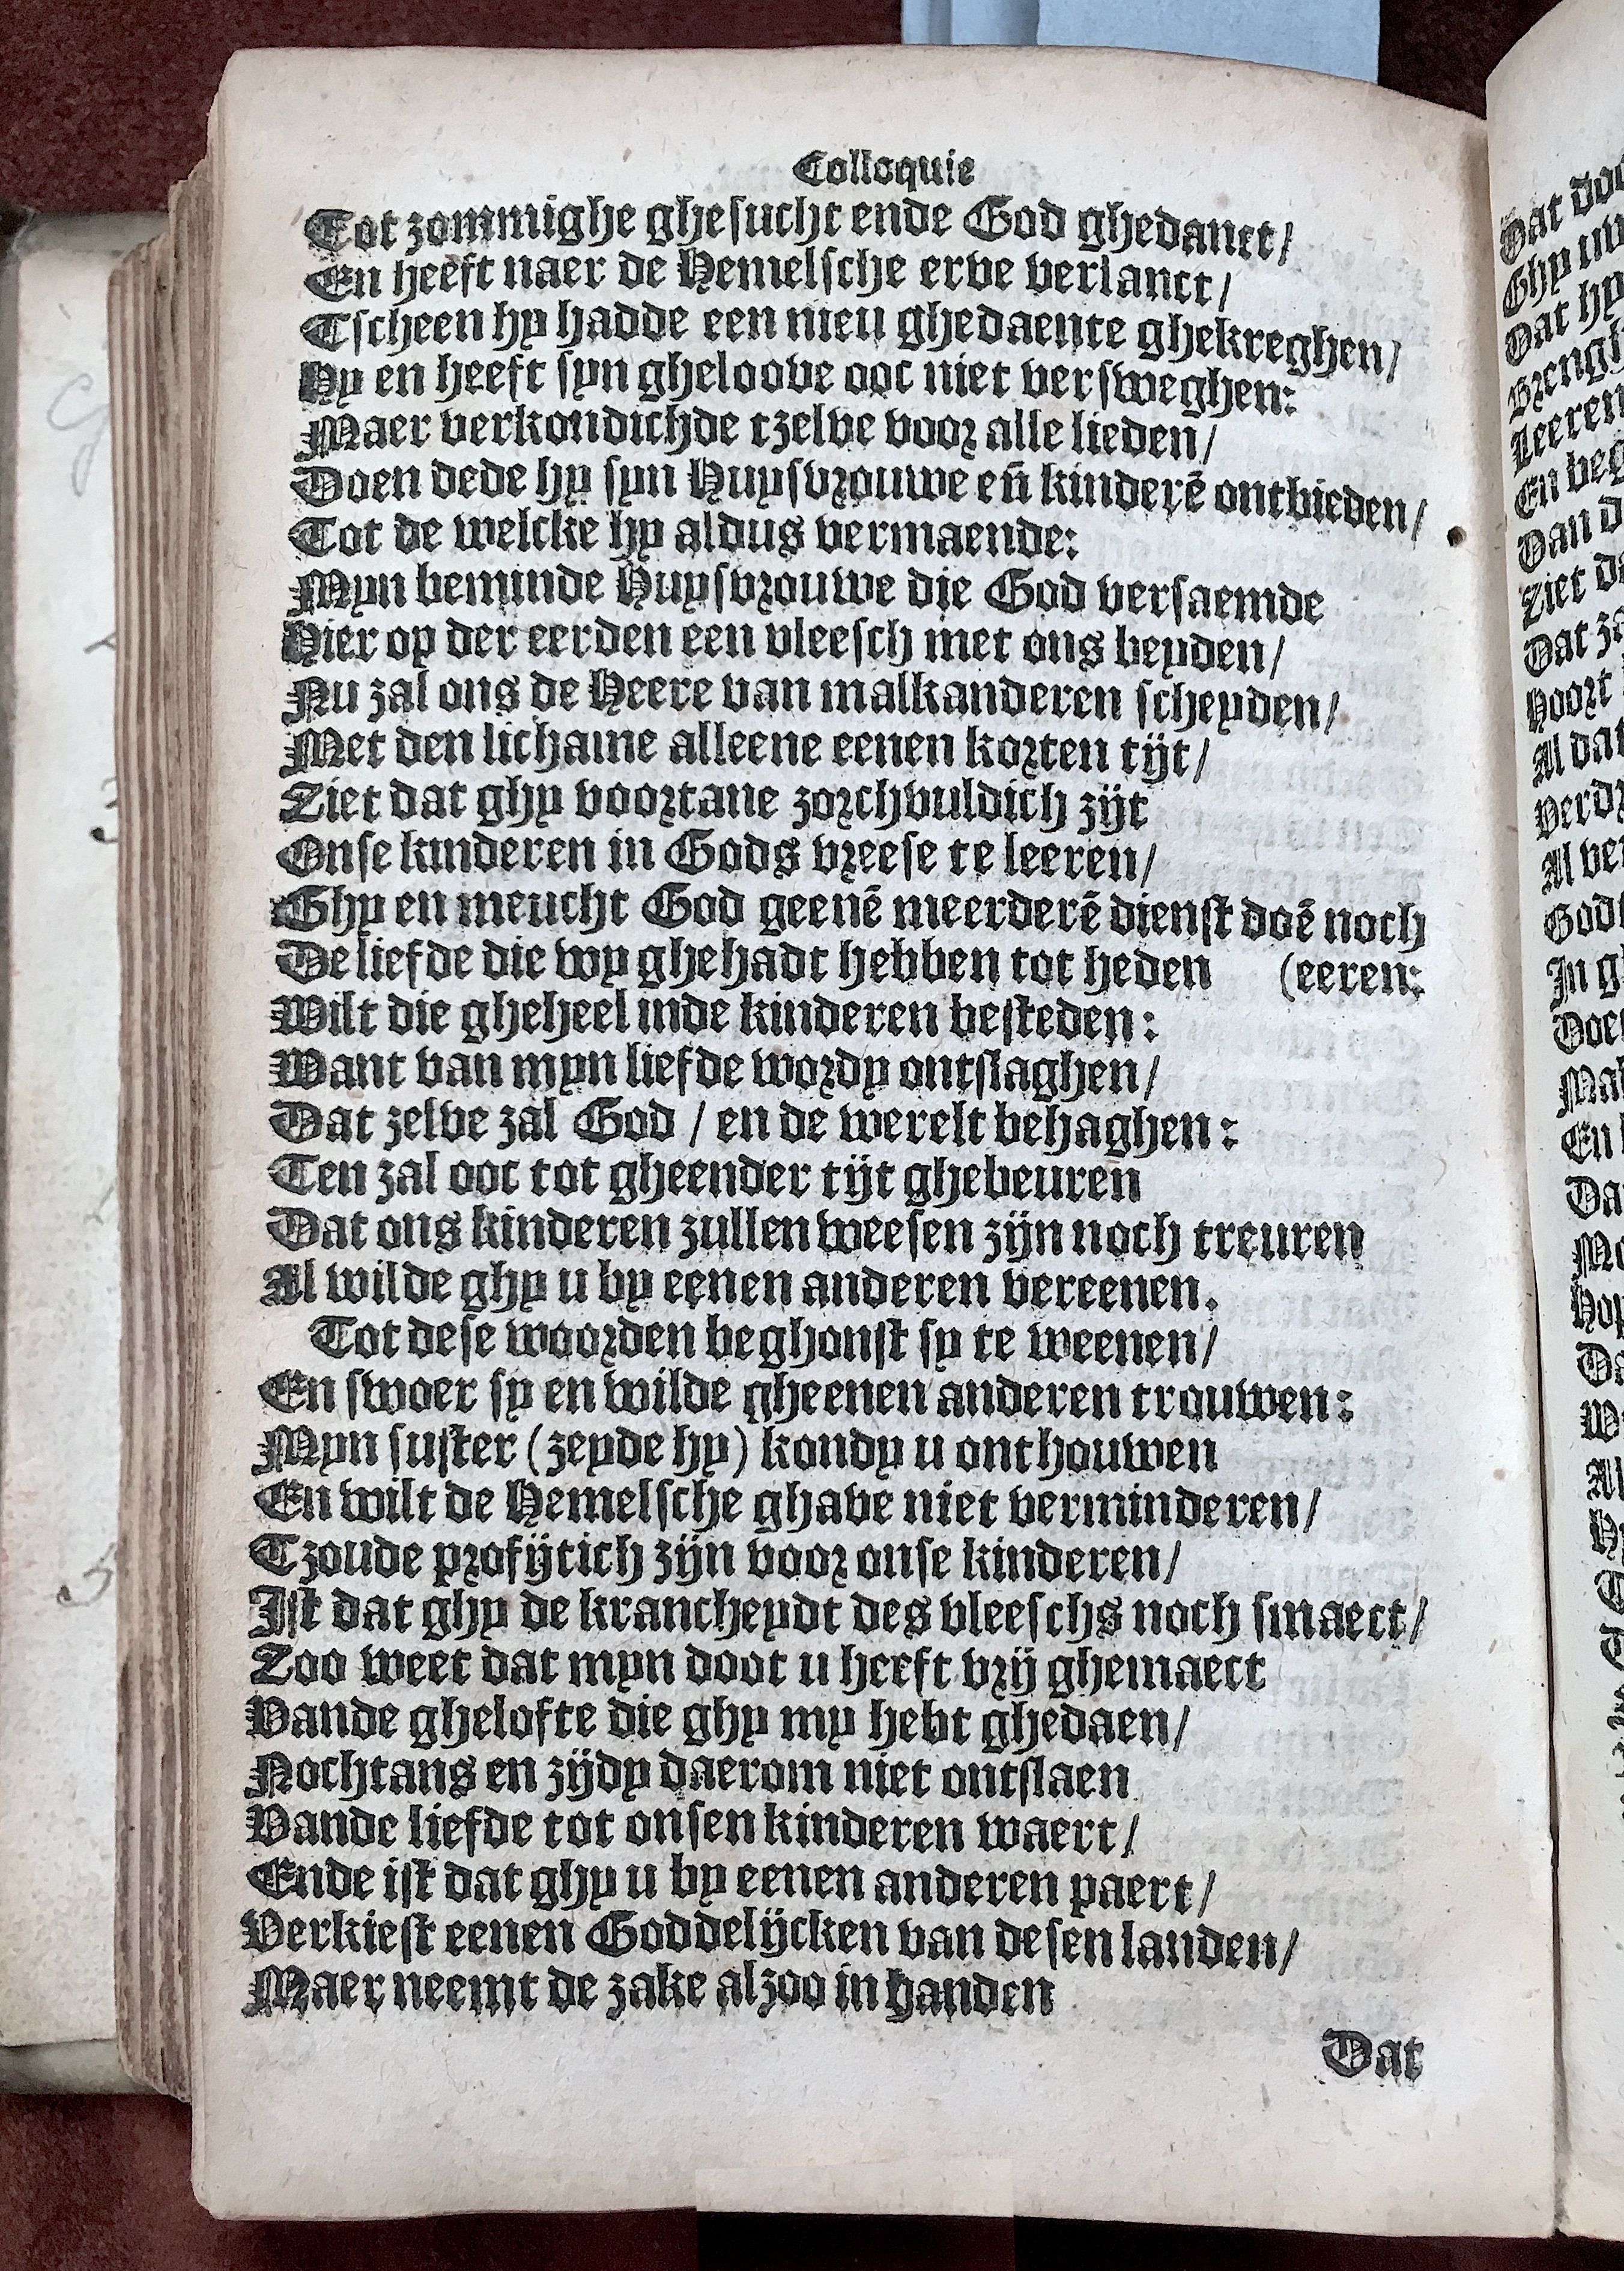 Colloquie
Tot zommighe ghesucht ende God ghedanct/
En heeft naer de Hemelsche erve verlanct/
Tscheen hy hadde een nieu ghedaente ghekreghen/
Hy en heeft syn gheloove ooc niet versweghen:
Maer verkondichde tzelve voor alle lieden/
Doen dede hy syn Huysvrouwe eñ kinderē ontbieden/
Tot de welcke hy aldus vermaende:
Myn beminde Huysvrouwe die God versaemde
Hier op der eerden een vleesch met ons beyden/
Nu zal ons de Heere van malkanderen scheyden/
Met den lichame alleene eenen korten tijt/
Ziet dat ghy voortane zorchvuldich zijt
Onse kinderen in Gods vreese te leeren/
Ghy en meucht God geenē meerderē dienst doē noch
De liefde die wy ghehadt hebben tot heden (eeren:
Wilt die gheheel inde kinderen besteden:
Want van myn liefde wordy ontslaghen/
Dat zelve zal God / en de werelt behaghen:
Ten zal ooc tot gheender tijt ghebeuren
Dat ons kinderen zullen weesen zijn noch treuren
Al wilde ghy u by eenen anderen vereenen.
Tot dese woorden beghonst sy te weenen/
En swoer sy en wilde gheenen anderen trouwen:
Myn suster (zeyde hy) kondy u onthouwen
En wilt de Hemelsche ghave niet verminderen/
Tzoude profijtich zijn voor onse kinderen/
Ist dat ghy de krancheydt des vleeschs noch smaect/
Zoo weet dat myn doot u heeft vrij ghemaect
Vande ghelofte die ghy my hebt ghedaen/
Nochtans en zijdy daerom niet ontslaen
Vande liefde tot onsen kinderen waert/
Ende ist dat ghy u by eenen anderen paert/
Verkiest eenen Goddelijcken van desen landen/
Maer neemt de zake alzoo in handen
Dat